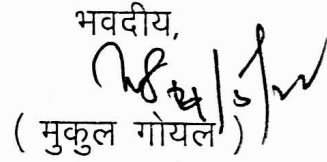 भवदीय,
( मुकुल गोयल )